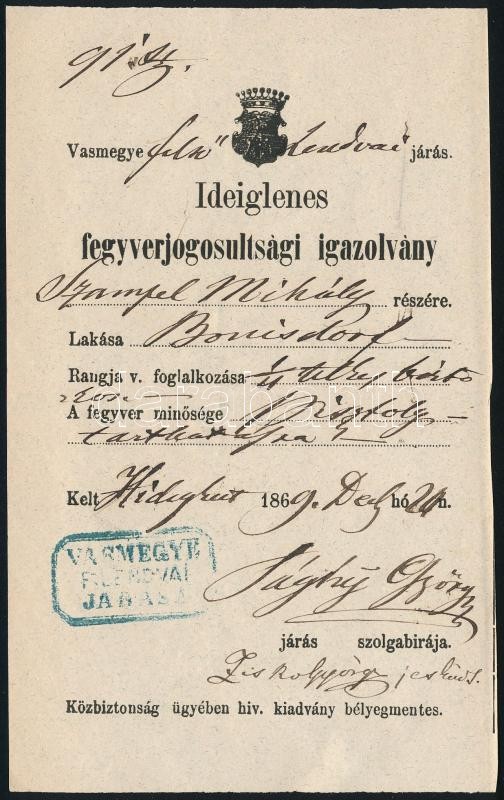 Vasmegye felső Lendvai járás.
Ideiglenes
fegyverjogosultsági igazolvány
Szampel Mihály részére.
Lakása Bonisdorf
Rangja v. foglalkozása 1/4 telkes birto
kos
A fegyver minősége 1 pisztoly
Kelt Hidegkut 1869. Dec hó 21n.
VASMEGYE
F. LENDVAI
JÁRÁSA
Sághy György
járás szolgabirája.
Ziskó György esküdt.
Közbiztonság ügyében hiv. kiadvány bélyegmentes.